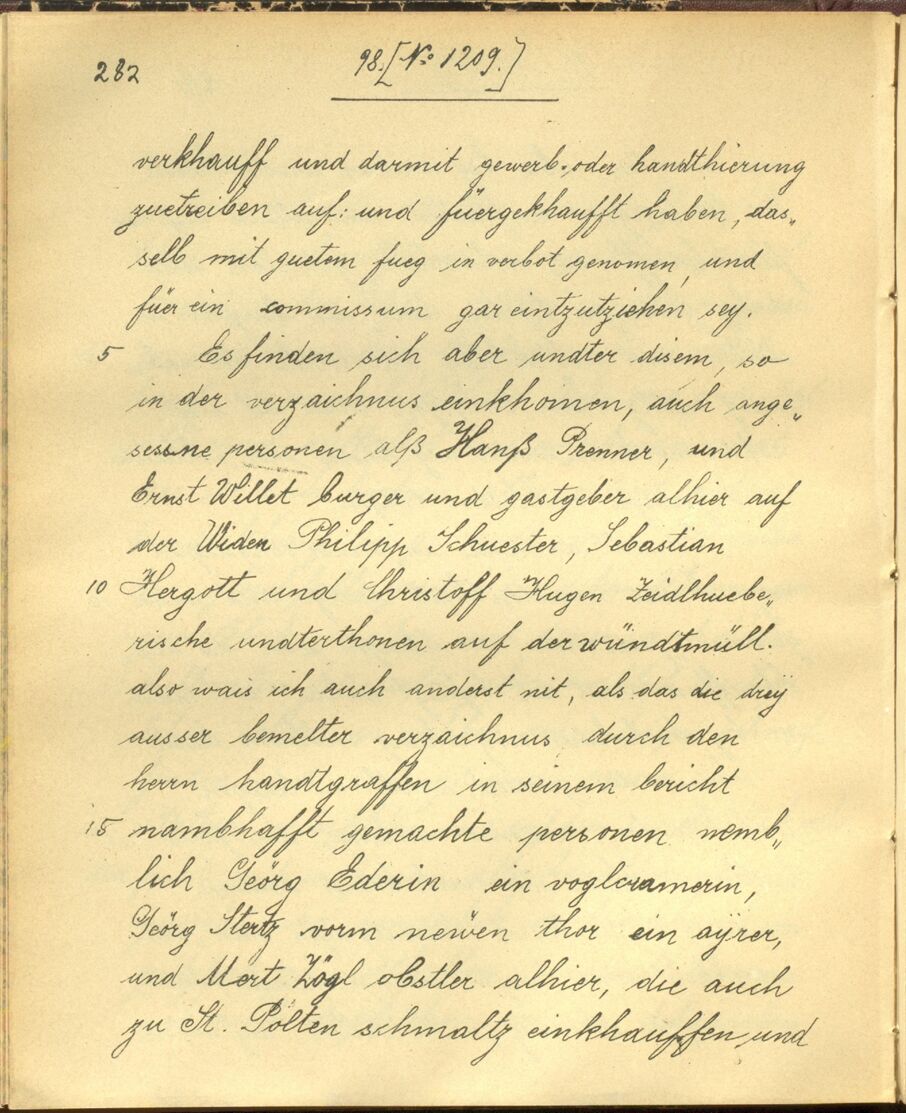 282
98. [No 1209.]
verkhauff und darmit gewerb- oder handthierung
zuetreiben auf: und füergekhaufft haben, das„
selb mit guetem fueg in verbot genomen und
füer ein commissum gar eintzutziehen sey.
5 Es finden sich aber undter disem, so
in der verzaichnus einkhomen, auch ange„
sessne personen alß Hanß Prenner, und
Ernst Willet burger und gastgeber alhier auf
der Widen Philipp Schuester, Sebastian
10 Hergott und Christoff Hugen Zeidlhuebe„
rische undterthonen auf der wündtmüll.
also wais ich auch anderst nit, als das die dreÿ
ausser bemelter verzaichnus durch den
herrn handtgraffen in seinem bericht
15 nambhafft gemachte personen nemb„
lich Geörg Ederin ein voglcramerin,
Geörg Stertz vorm neẅen thor ein aÿrer,
und Mert Zögl obstler alhier, die auch
zu St. Pölten schmaltz einkhauffen und